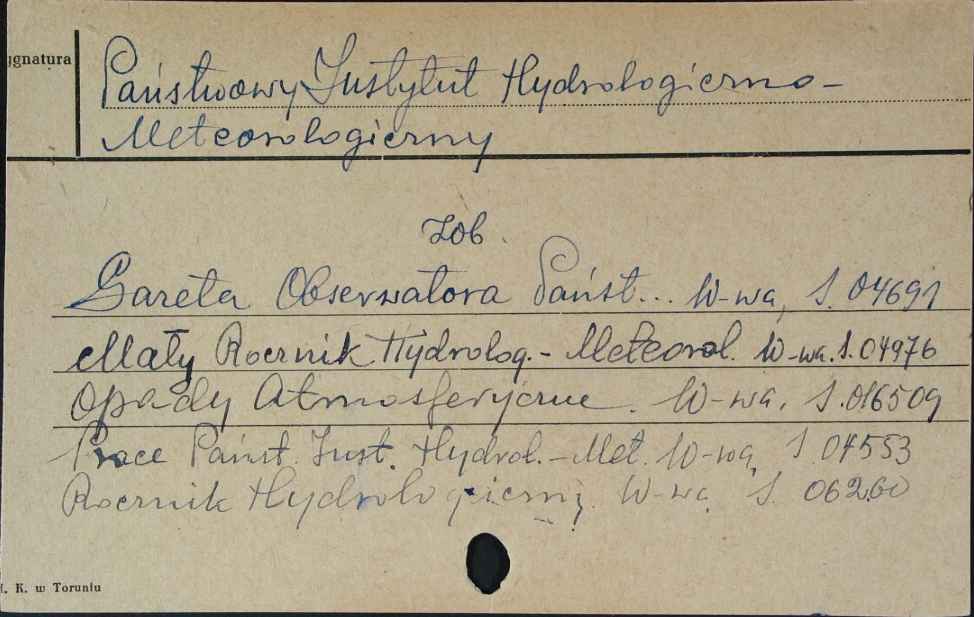 ygnatura
Państwowy Instytut Hydrologiczno-
Meteorologiczny
Zob.
Gazeta Obserwatora Państ... W-wa, S. 04691
Mały Rocznik Hydrolog.- Meteorol. W-wa. S. 04976
Opady Atmosferyczne. W-wa. S. 016509
Prace Państ. Inst. Hydrol.-Met. W-wa, S 04553
Rocznik Hydrologiczny. W-wa, S. 06260
I. K. w Toruniu